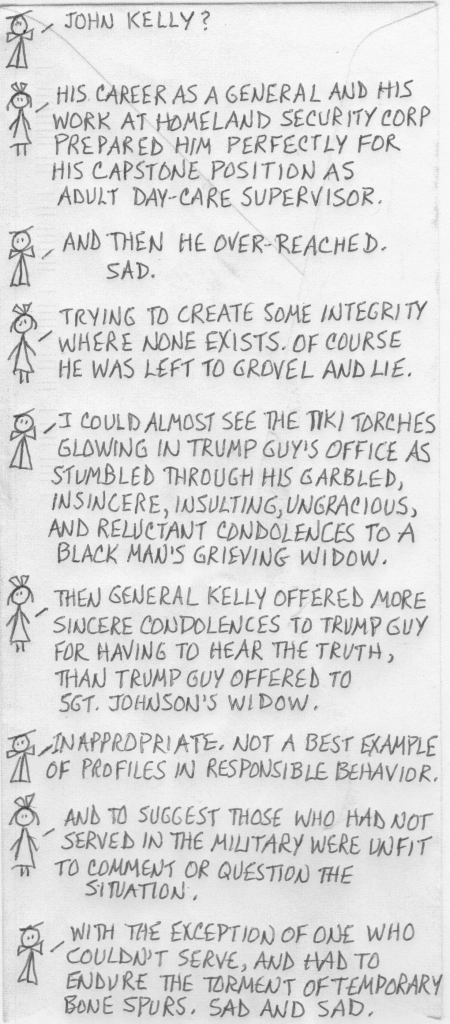 JOHN KELLY?
HIS CAREER AS A GENERAL AND HIS
WORK AT HOMELAND SECURITY CORP
PREPARED HIM PERFECTLY FOR
HIS CAPSTONE POSITION AS
ADULT DAY-CARE SUPERVISOR.
AND THEN HE OVER-REACHED.
SAD.
TRYING TO CREATE SOME INTEGRITY
WHERE NONE EXISTS. OF COURSE
HE WAS LEFT TO GROVEL AND LIE.
I COULD ALMOST SEE THE TIKI TORCHES
GLOWING IN TRUMP GUY'S OFFICE AS
STUMBLED THROUGH HIS GARBLED,
INSINCERE, INSULTING, UNGRACIOUS,
AND RELUCTANT CONDOLENCES TO A
BLACK MAN'S GRIEVING WIDOW.
THEN GENERAL KELLY OFFERED MORE
SINCERE CONDOLENCES TO TRUMP GUY
FOR HAVING TO HEAR THE TRUTH,
THAN TRUMP GUY OFFERED TO
SGT. JOHNSON'S WIDOW.
INAPPROPRIATE. NOT A BEST EXAMPLE
OF PROFILES IN RESPONSIBLE BEHAVIOR.
AND TO SUGGEST THOSE WHO HAD NOT
SERVED IN THE MILITARY WERE UNFIT
TO COMMENT OR QUESTION THE
SITUATION.
WITH THE EXCEPTION OF ONE WHO
COULDN'T SERVE, AND HAD TO
ENDURE THE TORMENT OF TEMPORARY
BONE SPURS. SAD AND SAD.